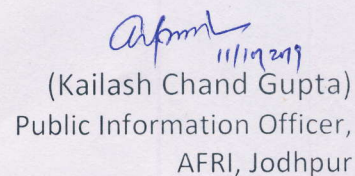 11/10/2019
(Kailash Chand Gupta)
Public Information Officer,
AFRI, Jodhpur